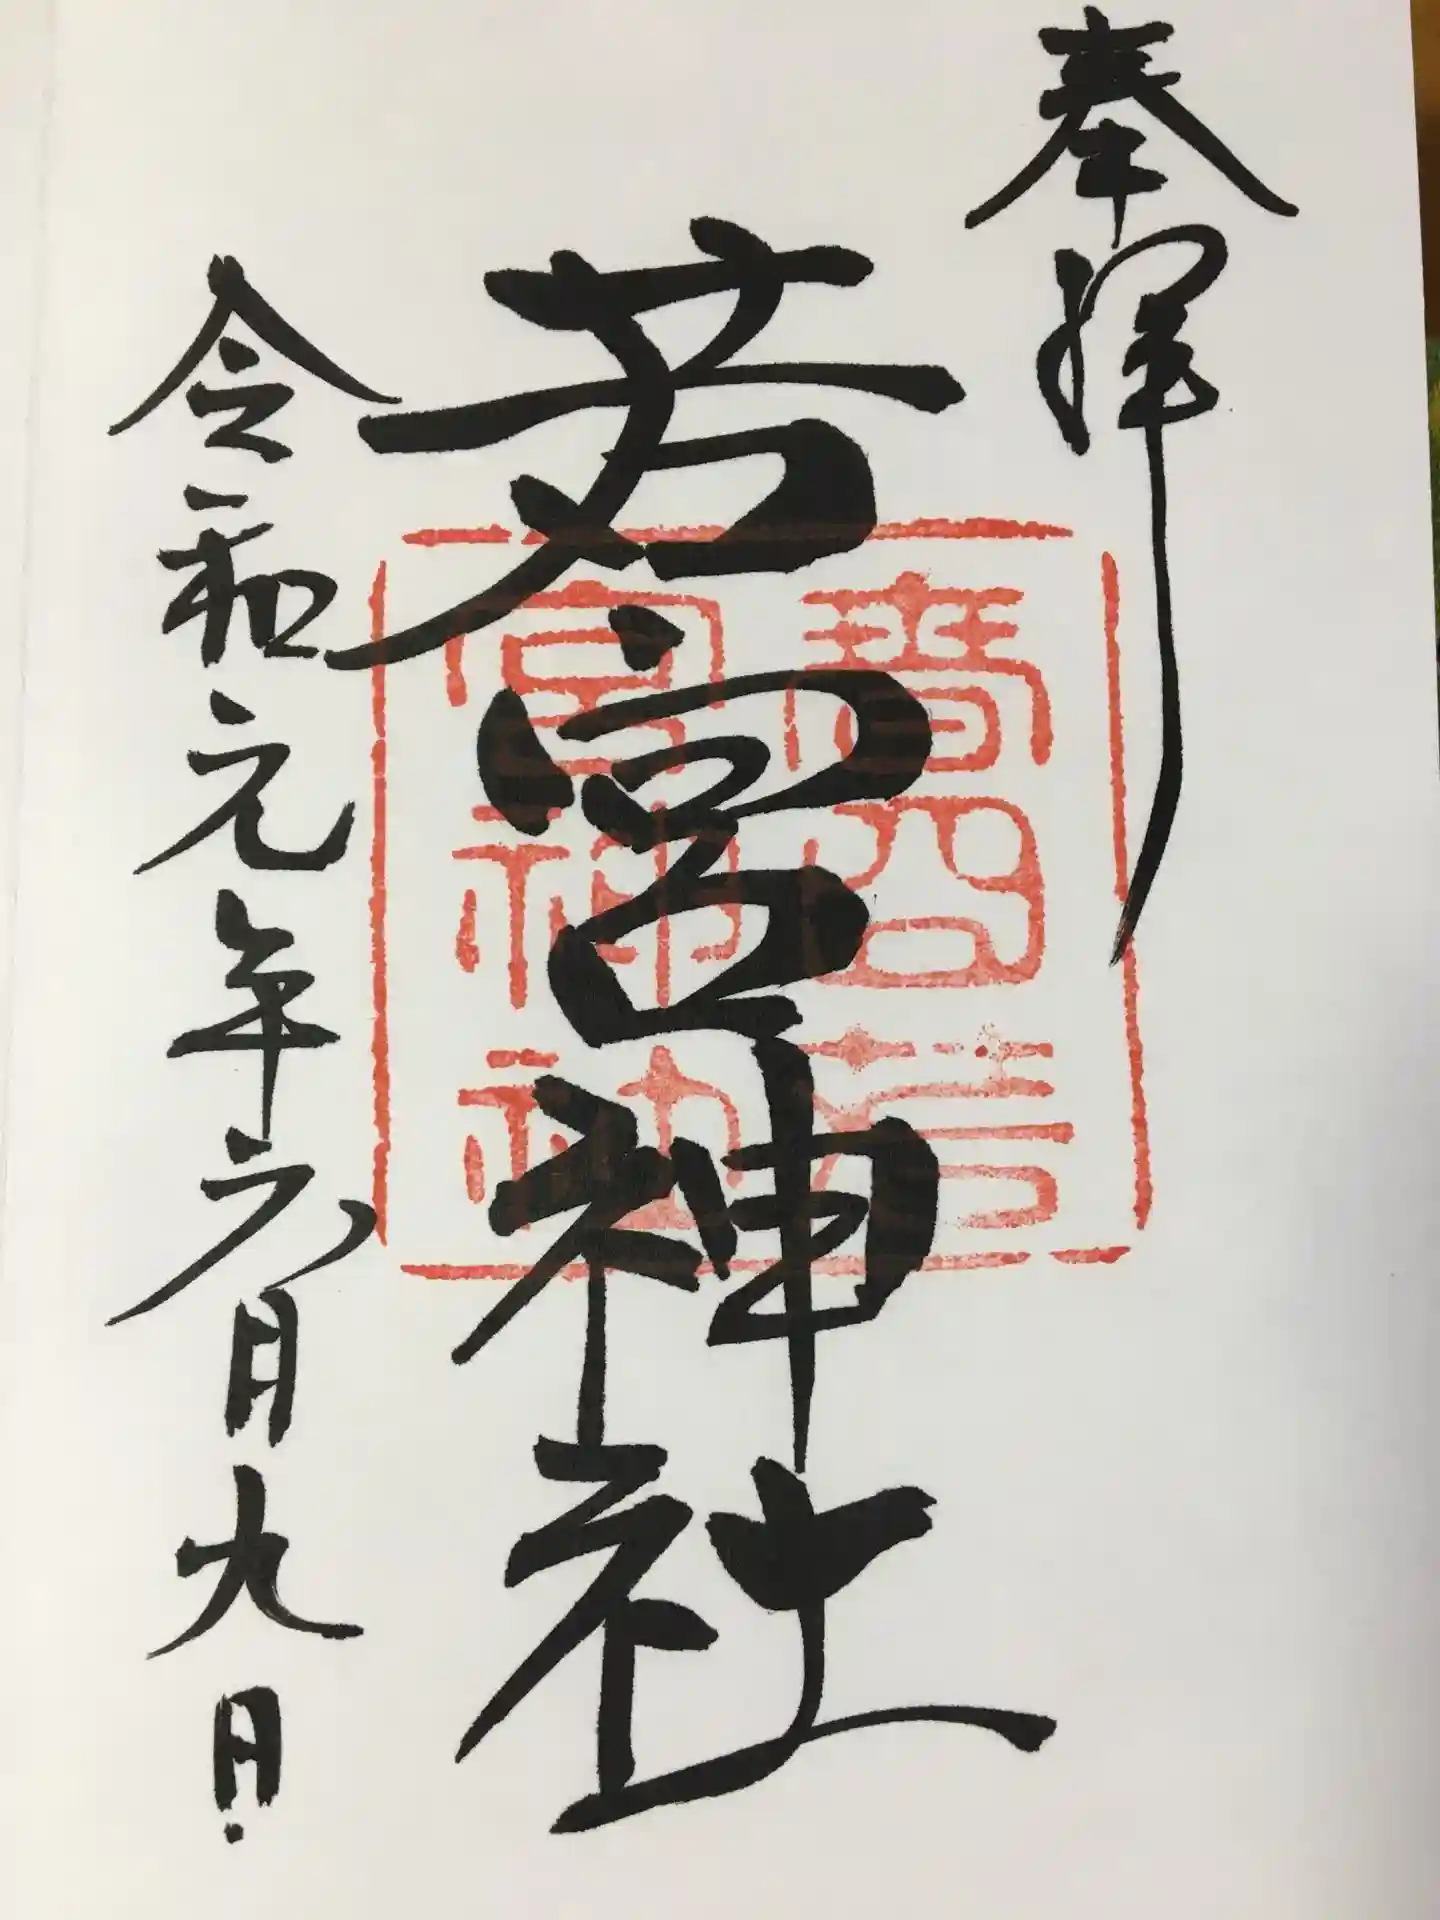 奉拝
若宮神社
令和元年六月九日
宮神社